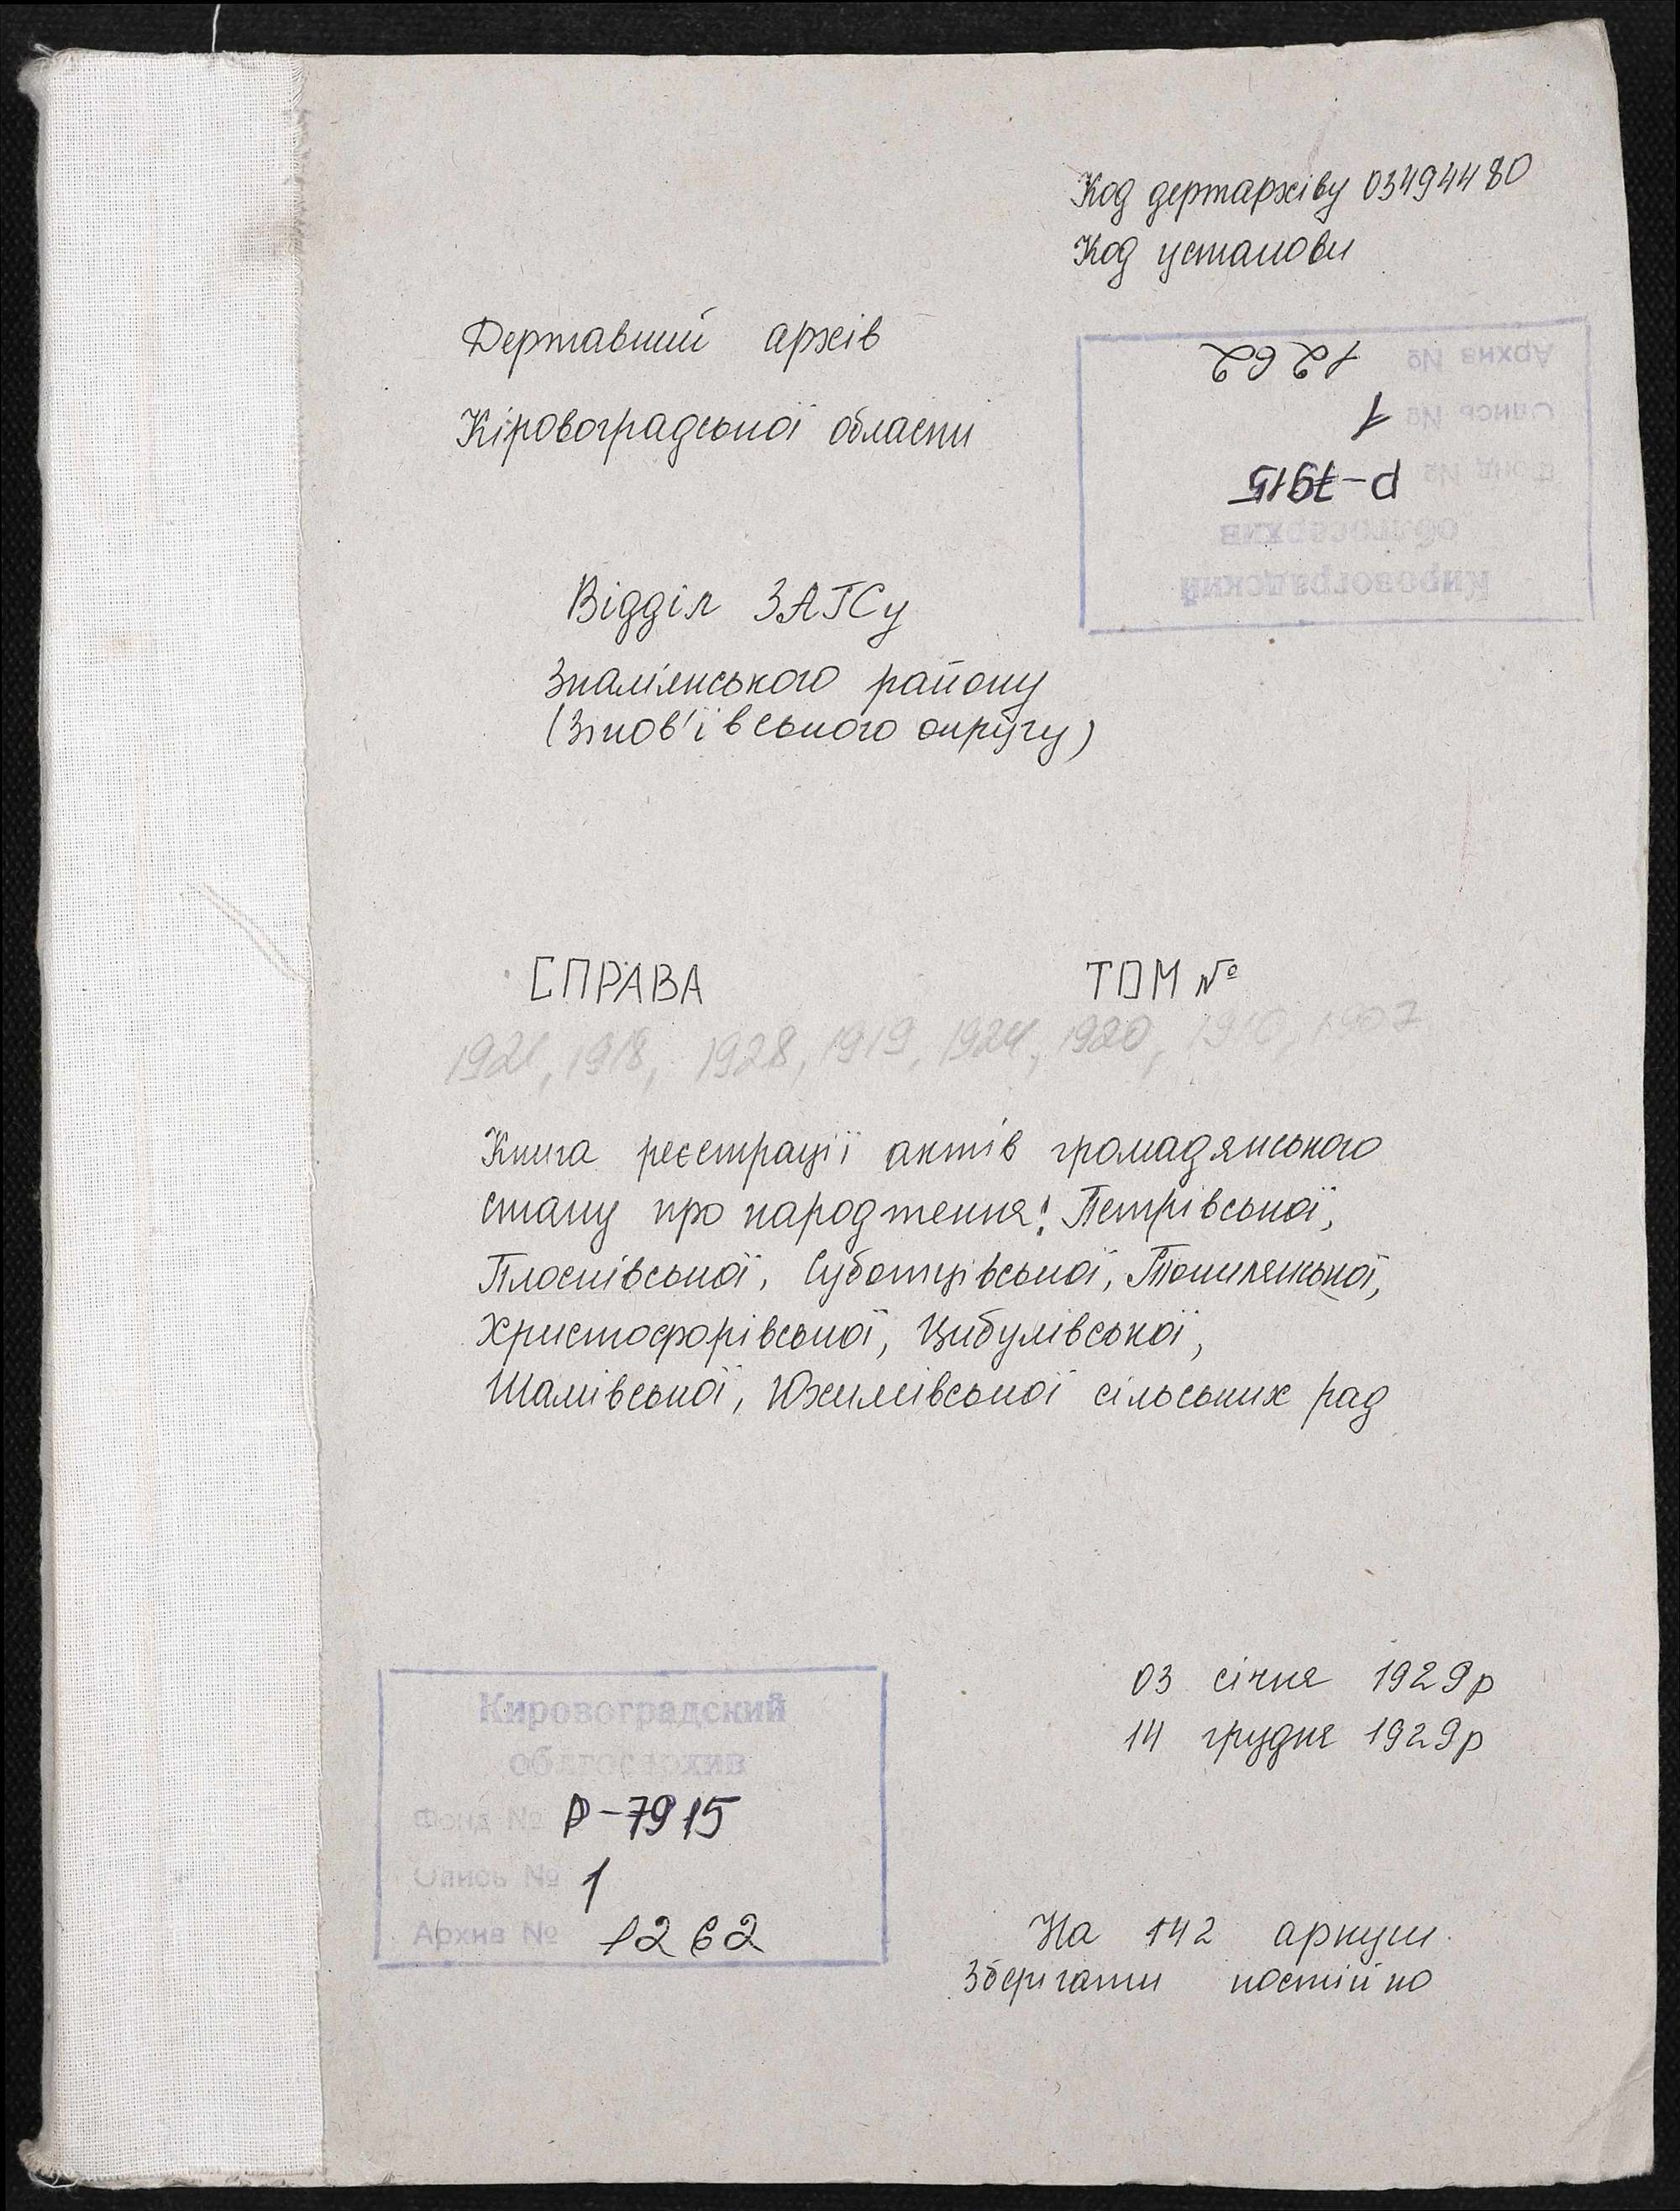 Код держархіву 03494480
Код установи
Державний архів
Кіровоградської області
Архив № 1262
Опись № 1
Фонд № Р-7915
облгосархив
Кировоградский
Відділ ЗАГСу
Знам'янського району
(Зінов'ївського округу)
СПРАВА ТОМ №
1921, 1918, 1928, 1919, 1924, 1920, 1916, 1907
Книга реєстрації актів громадянського
стану про народження: Петрівської,
Плосківської, Суботцівської, Топилянської,
Христофорівської, Цибулівської,
Шамівської, Юхимівської сільських рад
03 січня 1929р
14 грудня 1929р
Кировоградский
облгосархив
Фонд № Р-7915
Опись № 1
Архив № 1262
На 142 аркуш.
Зберігати постійно